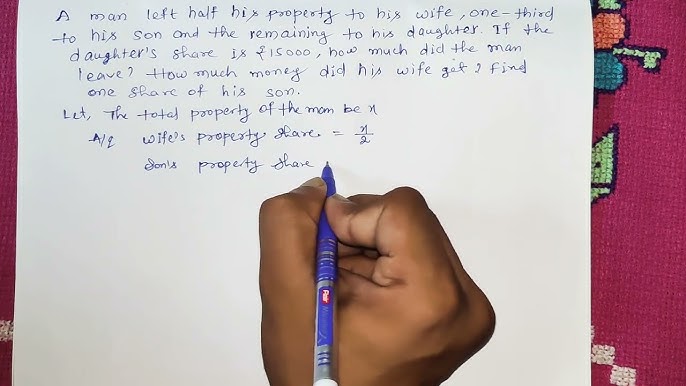 A man left half his property to his wife, one-third
to his son and the remaining to his daughter. If the
daughter's share is ₹15000, how much did the man
leave? How much money did his wife get? find
one share of his son.
Let, The total property of the man be x
A/q wife's property share = x/2
Son's property share
Flair